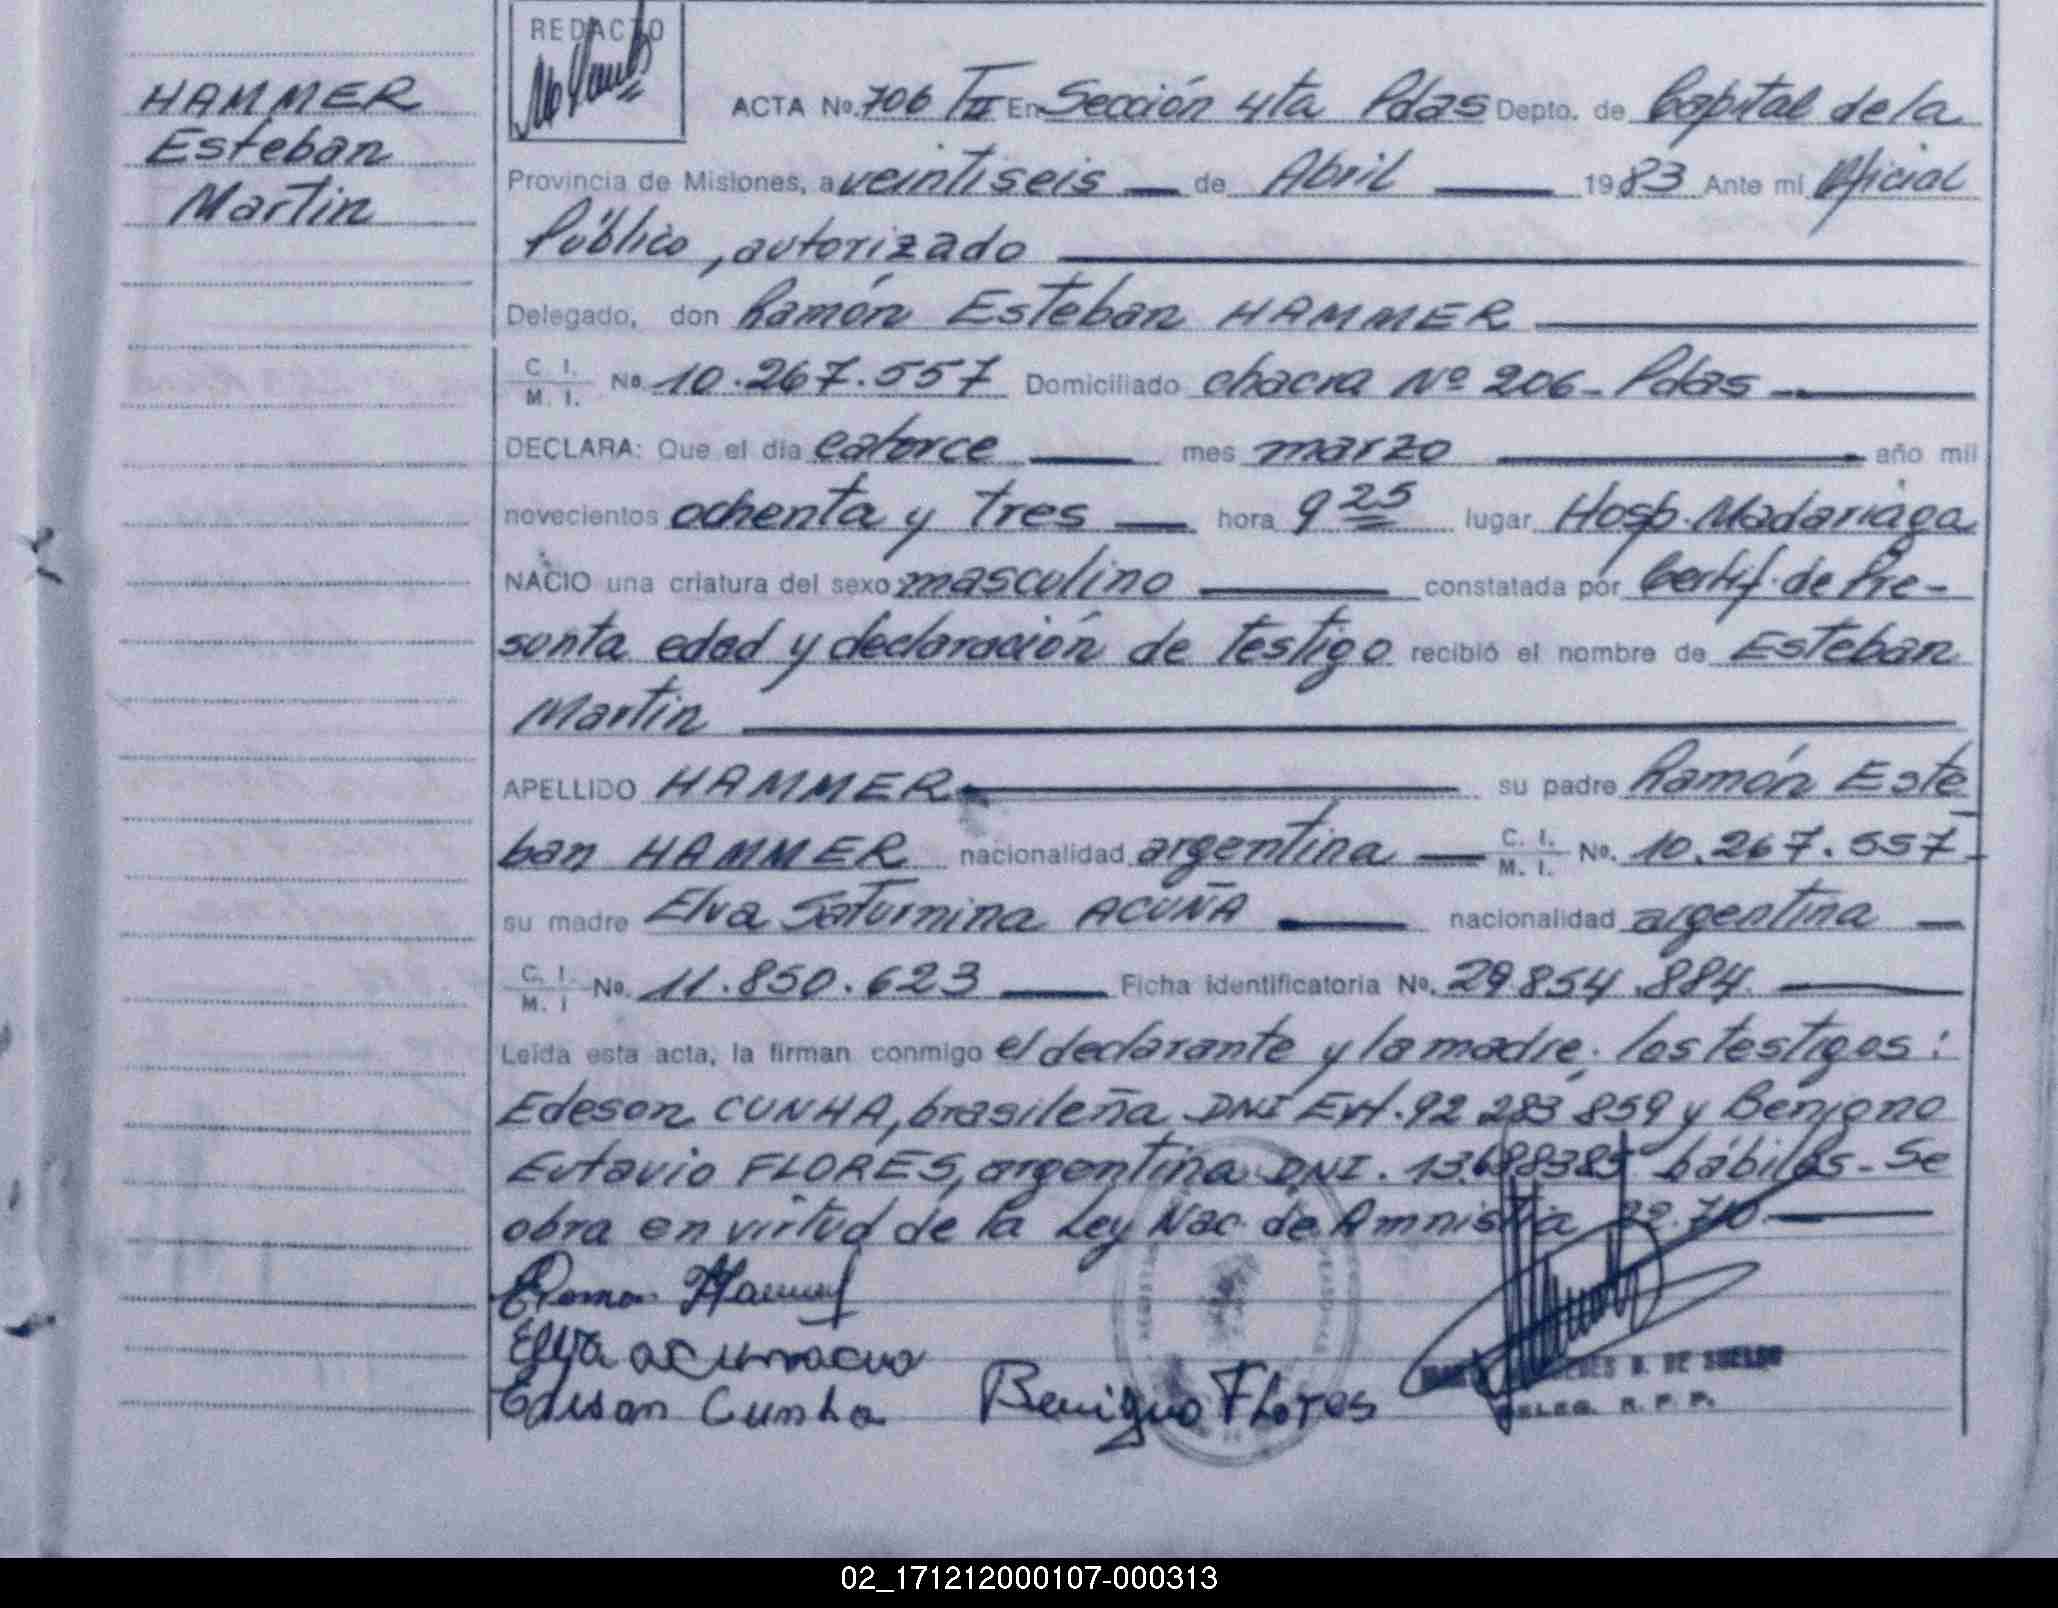 HAMMER
Esteban
Martin
REDACTO
ACTA No. 706 TII En Sección 4ta Pdas Depto. de Capital de la
Provincia de Misiones, a veintiseis de Abril 1983 Ante mí Oficial
Público, autorizado
Delegado, don Ramón Esteban HAMMER
C. I.
M. I. No. 10.267.557 Domiciliado chacra Nº 206 - Pdas
DECLARA: Que el día catorce mes marzo año mil
novecientos ochenta y tres hora 9 25 lugar Hosp. Madariaga
NACIO una criatura del sexo masculino constatada por Certif. de Pre-
sunta edad y declaración de testigo recibió el nombre de Esteban
Martin
APELLIDO HAMMER su padre Ramón Este
ban HAMMER nacionalidad argentina C. I. M. I. No. 10.267.557
su madre Elva Saturnina ACUÑA nacionalidad argentina
C. I.
M. I No. 11.850.623 Ficha identificatoria No. 29.854.884
Leída esta acta, la firman conmigo el declarante y la madre; los testigos:
Edeson CUNHA, brasileña DNI Ext. 92 283 859 y Benigno
Eutavio FLORES, argentina DNI. 13.698385 hábiles - Se
obra en virtud de la Ley Nac. de Amnistia
Edeson Cunha Benigno Flores
DELEG. R. P. P.
02_171212000107-000313